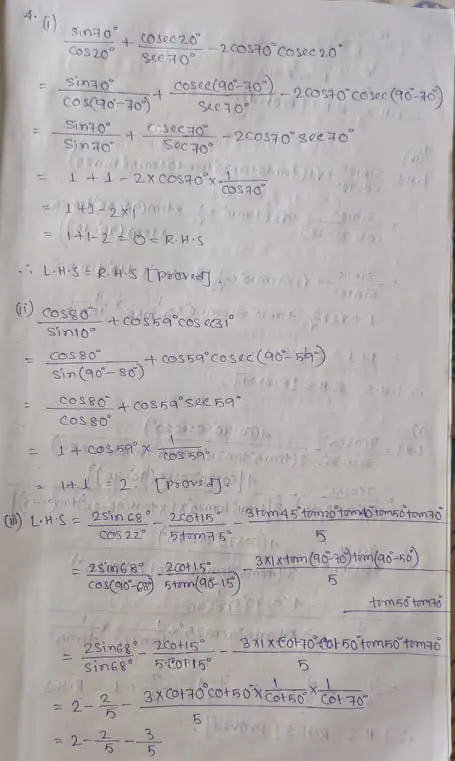 4. (i) sin70°/cos20° + cosec20°/sec70° - 2cos70°cosec20°
= sin70°/cos(90°-70°) + cosec(90°-70°)/sec70° - 2cos70°cosec(90°-70°)
= sin70°/sin70° + cosec70°/sec70° - 2cos70°sec70°
= 1 + 1 - 2 × cos70° × 1/cos70°
= 1+1-2×1
= 1+1-2 = 0 = R.H.S
∴ L.H.S = R.H.S [proved].
(ii) cos80°/sin10° + cos59°cosec31°
= cos80°/sin(90°-80°) + cos59°cosec(90°-59°)
= cos80°/cos80° + cos59°sec59°
= 1 + cos59° × 1/cos59°
= 1+1 = 2. [proved].
(iii) L.H.S = 2sin68°/cos22° - 2cot15°/5tan75° - 3tan45°tan20°tan40°tan50°tan70°/5
= 2sin68°/cos(90°-68°) - 2cot15°/5tan(90°-15) - 3×1×tan(90°-70°)tan(90°-50°)/5
tan50°tan70°
= 2sin68°/sin68° - 2cot15°/5cot15° - 3×1×cot70°cot50°tan50°tan70°/5
= 2 - 2/5 - 3×cot70°cot50°×1/cot50°×1/cot70°/5
= 2 - 2/5 - 3/5